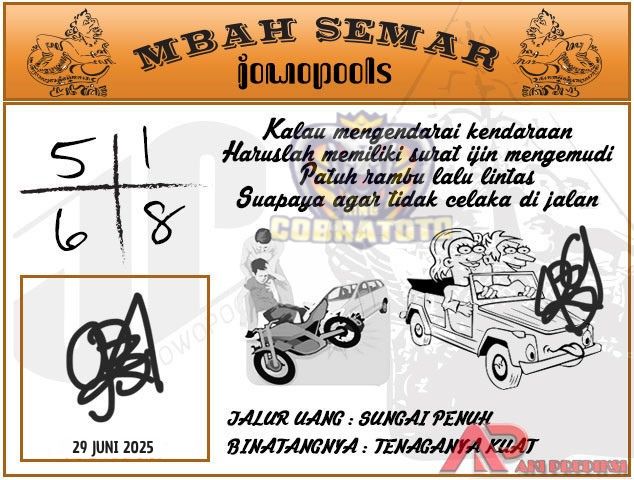 MBAH SEMAR
jowopools
5 1
6 8
Kalau mengendarai kendaraan
Haruslah memiliki surat ijin mengemudi
Patuh rambu lalu lintas
Suapaya agar tidak celaka di jalan
COBRATOTO
29 JUNI 2025
JALUR UANG : SUNGAI PENUH
BINATANGNYA : TENAGANYA KUAT
AP
AKI PREDIKSI